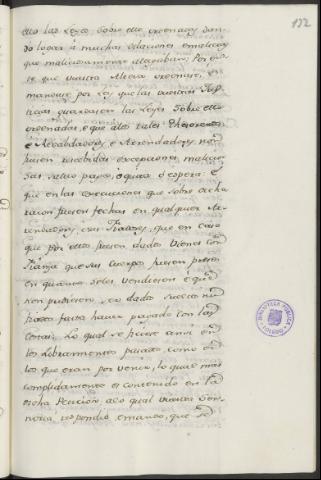 132
ello las Leyes sobre ello ordenadas dan-
do logar à muchas dilaciones
que maliciosamente allegaban; Por ende
que vuestra Alteza ordenase, è
mandase por Ley, que las vuestras Jus-
ticias guardasen las Leyes sobre ello
ordenadas, è que à los tales Thesoreros
è Recabdadores, è Arrendadores non
fuesen rescebidas excepciones malicio-
sas salvo paga, ò quita, ò espera: È
que en las execuciones que sobre dicha
racion fuesen fechas en qualquier Arre-
ndadores, è sus Fiadores, que en caso
que por ellos fuesen dados vienes con
Fianza que sus cuerpos fuesen presos
en quanto se les vendiesen è que
non pudiesen ser dados sueltos nin
fiados fasta haver pagado con las
costas: Lo qual se ficiese ansi en
los Libramientos pasados como en
los que eran por venir, lo qual mas
complidamente es contenido en la
dicha Peticion, à lo qual vuestra Señ-
oria respondiò è mandò, que se
BIBLIOTECA PUBLICA
TOLEDO